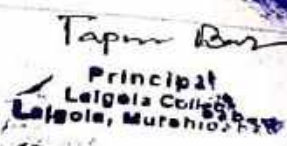 Tapan
Principal
Lalgola College
Lalgola, Murshidabad